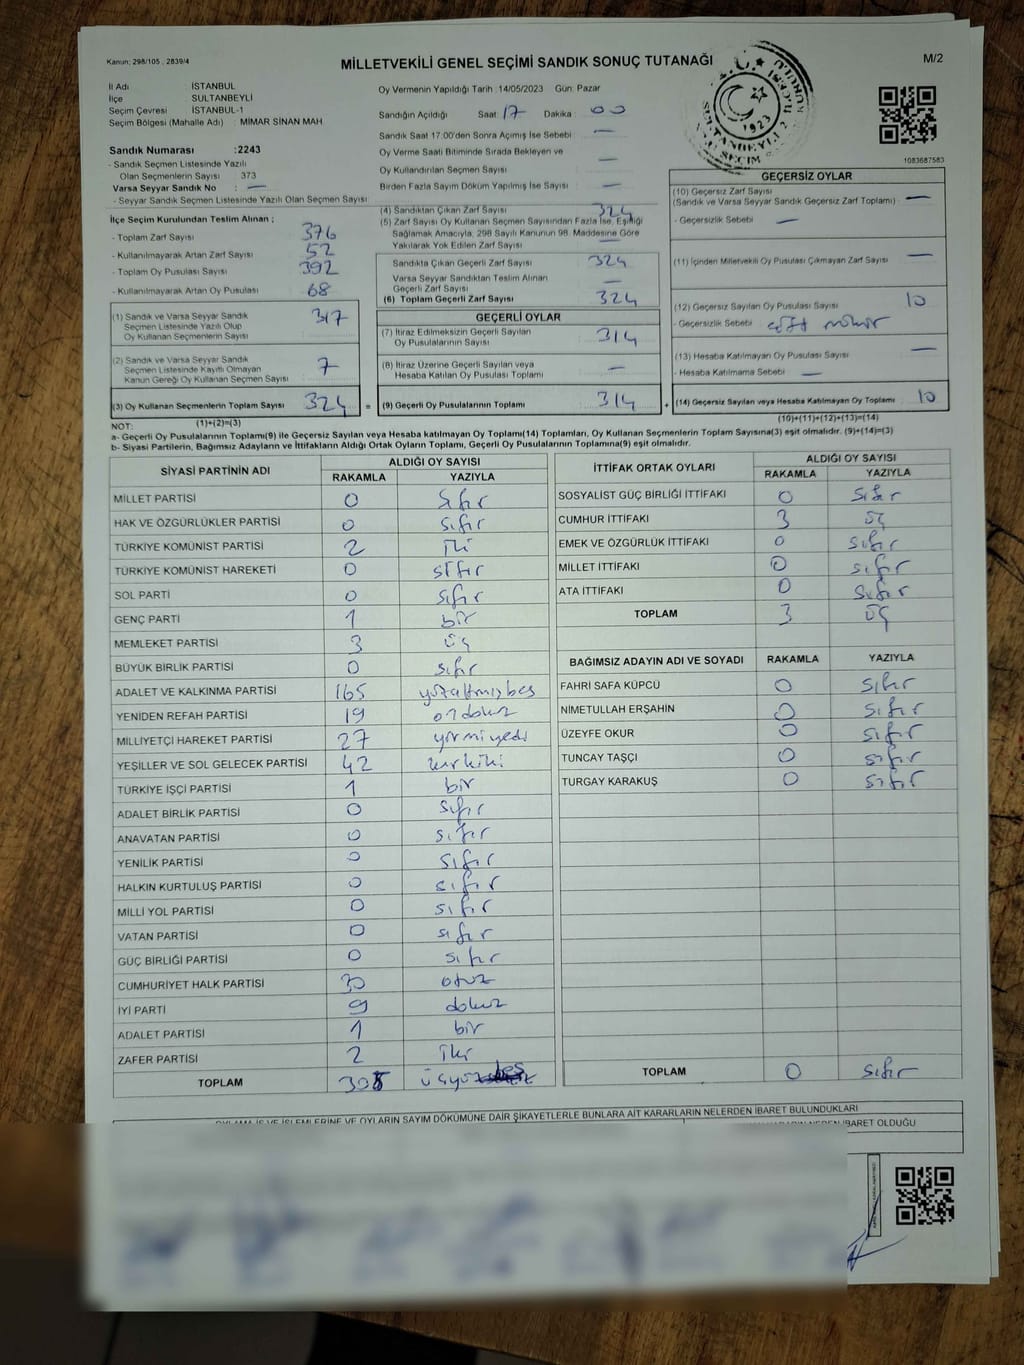 Kanun; 298/105 , 2839/4
MİLLETVEKİLİ GENEL SEÇİMİ SANDIK SONUÇ TUTANAĞI
M/2
İl Adı İSTANBUL
İlçe SULTANBEYLİ
Seçim Çevresi İSTANBUL-1
Seçim Bölgesi (Mahalle Adı) : MİMAR SİNAN MAH
Sandık Numarası :2243
- Sandık Seçmen Listesinde Yazılı
Olan Seçmenlerin Sayısı 373
Varsa Seyyar Sandık No : —
- Seyyar Sandık Seçmen Listesinde Yazılı Olan Seçmen Sayısı
Oy Vermenin Yapıldığı Tarih :14/05/2023 Gün: Pazar
Sandığın Açıldığı Saat 17 Dakika : 00
Sandık Saat 17:00'den Sonra Açımış İse Sebebi : —
Oy Verme Saati Bitiminde Sırada Bekleyen ve
Oy Kullandırılan Seçmen Sayısı : —
Birden Fazla Sayım Döküm Yapılmış İse Sayısı : —
1923
1083687583
İlçe Seçim Kurulundan Teslim Alınan ;
- Toplam Zarf Sayısı : 376
- Kullanılmayarak Artan Zarf Sayısı : 52
- Toplam Oy Pusulası Sayısı : 392
- Kullanılmayarak Artan Oy Pusulası : 68
(1) Sandık ve Varsa Seyyar Sandık 317
Seçmen Listesinde Yazılı Olup
Oy Kullanan Seçmenlerin Sayısı
(2) Sandık ve Varsa Seyyar Sandık
Seçmen Listesinde Kayıtlı Olmayan 7
Kanun Gereği Oy Kullanan Seçmen Sayısı
(3) Oy Kullanan Seçmenlerin Toplam Sayısı 324 =
(1)+(2)=(3)
(4) Sandıktan Çıkan Zarf Sayısı 324
(5) Zarf Sayısı Oy Kullanan Seçmen Sayısından Fazla İse, Eşitliği
Sağlamak Amacıyla, 298 Sayılı Kanunun 98. Maddesine Göre
Yakılarak Yok Edilen Zarf Sayısı —
Sandıkta Çıkan Geçerli Zarf Sayısı 324
Varsa Seyyar Sandıktan Teslim Alınan
Geçerli Zarf Sayısı —
(6) Toplam Geçerli Zarf Sayısı 324
GEÇERLİ OYLAR
(7) İtiraz Edilmeksizin Geçerli Sayılan
Oy Pusulalarının Sayısı 314
(8) İtiraz Üzerine Geçerli Sayılan veya
Hesaba Katılan Oy Pusulası Toplamı —
(9) Geçerli Oy Pusulalarının Toplamı 314 +
GEÇERSİZ OYLAR
(10) Geçersiz Zarf Sayısı
(Sandık ve Varsa Seyyar Sandık Geçersiz Zarf Toplamı) —
- Geçersizlik Sebebi : —
(11) İçinden Milletvekili Oy Pusulası Çıkmayan Zarf Sayısı —
(12) Geçersiz Sayılan Oy Pusulası Sayısı 10
- Geçersizlik Sebebi : çift mühür
(13) Hesaba Katılmayan Oy Pusulası Sayısı —
- Hesaba Katılmama Sebebi : —
(14) Geçersiz Sayılan veya Hesaba Katılmayan Oy Toplamı 10
(10)+(11)+(12)+(13)=(14)
NOT:
a- Geçerli Oy Pusulalarının Toplamı(9) ile Geçersiz Sayılan veya Hesaba katılmayan Oy Toplamı(14) Toplamları, Oy Kullanan Seçmenlerin Toplam Sayısına(3) eşit olmalıdır. (9)+(14)=(3)
b- Siyasi Partilerin, Bağımsız Adayların ve İttifakların Aldığı Ortak Oyların Toplamı, Geçerli Oy Pusulalarının Toplamına(9) eşit olmalıdır.
SİYASİ PARTİNİN ADI ALDIĞI OY SAYISI
RAKAMLA YAZIYLA
MİLLET PARTİSİ 0 sıfır
HAK VE ÖZGÜRLÜKLER PARTİSİ 0 sıfır
TÜRKİYE KOMÜNİST PARTİSİ 2 iki
TÜRKİYE KOMÜNİST HAREKETİ 0 sıfır
SOL PARTİ 0 sıfır
GENÇ PARTİ 1 bir
MEMLEKET PARTİSİ 3 üç
BÜYÜK BİRLİK PARTİSİ 0 sıfır
ADALET VE KALKINMA PARTİSİ 165 yüzaltmışbeş
YENİDEN REFAH PARTİSİ 19 ondokuz
MİLLİYETÇİ HAREKET PARTİSİ 27 yirmiyedi
YEŞİLLER VE SOL GELECEK PARTİSİ 42 kırkiki
TÜRKİYE İŞÇİ PARTİSİ 1 bir
ADALET BİRLİK PARTİSİ 0 sıfır
ANAVATAN PARTİSİ 0 sıfır
YENİLİK PARTİSİ 0 sıfır
HALKIN KURTULUŞ PARTİSİ 0 sıfır
MİLLİ YOL PARTİSİ 0 sıfır
VATAN PARTİSİ 0 sıfır
GÜÇ BİRLİĞİ PARTİSİ 0 sıfır
CUMHURİYET HALK PARTİSİ 30 otuz
İYİ PARTİ 9 dokuz
ADALET PARTİSİ 1 bir
ZAFER PARTİSİ 2 iki
TOPLAM üçyüz beş
İTTİFAK ORTAK OYLARI ALDIĞI OY SAYISI
RAKAMLA YAZIYLA
SOSYALİST GÜÇ BİRLİĞİ İTTİFAKI 0 sıfır
CUMHUR İTTİFAKI 3 üç
EMEK VE ÖZGÜRLÜK İTTİFAKI 0 sıfır
MİLLET İTTİFAKI 0 sıfır
ATA İTTİFAKI 0 sıfır
TOPLAM 3 üç
BAĞIMSIZ ADAYIN ADI VE SOYADI RAKAMLA YAZIYLA
FAHRİ SAFA KÜPCÜ 0 sıfır
NİMETULLAH ERŞAHİN 0 sıfır
ÜZEYFE OKUR 0 sıfır
TUNCAY TAŞÇI 0 sıfır
TURGAY KARAKUŞ 0 sıfır
TOPLAM 0 sıfır
OYLAMA İŞ VE İŞLEMLERİNE VE OYLARIN SAYIM DÖKÜMÜNE DAİR ŞİKAYETLERLE BUNLARA AİT KARARLARIN NELERDEN İBARET BULUNDUKLARI
İBARET OLDUĞU